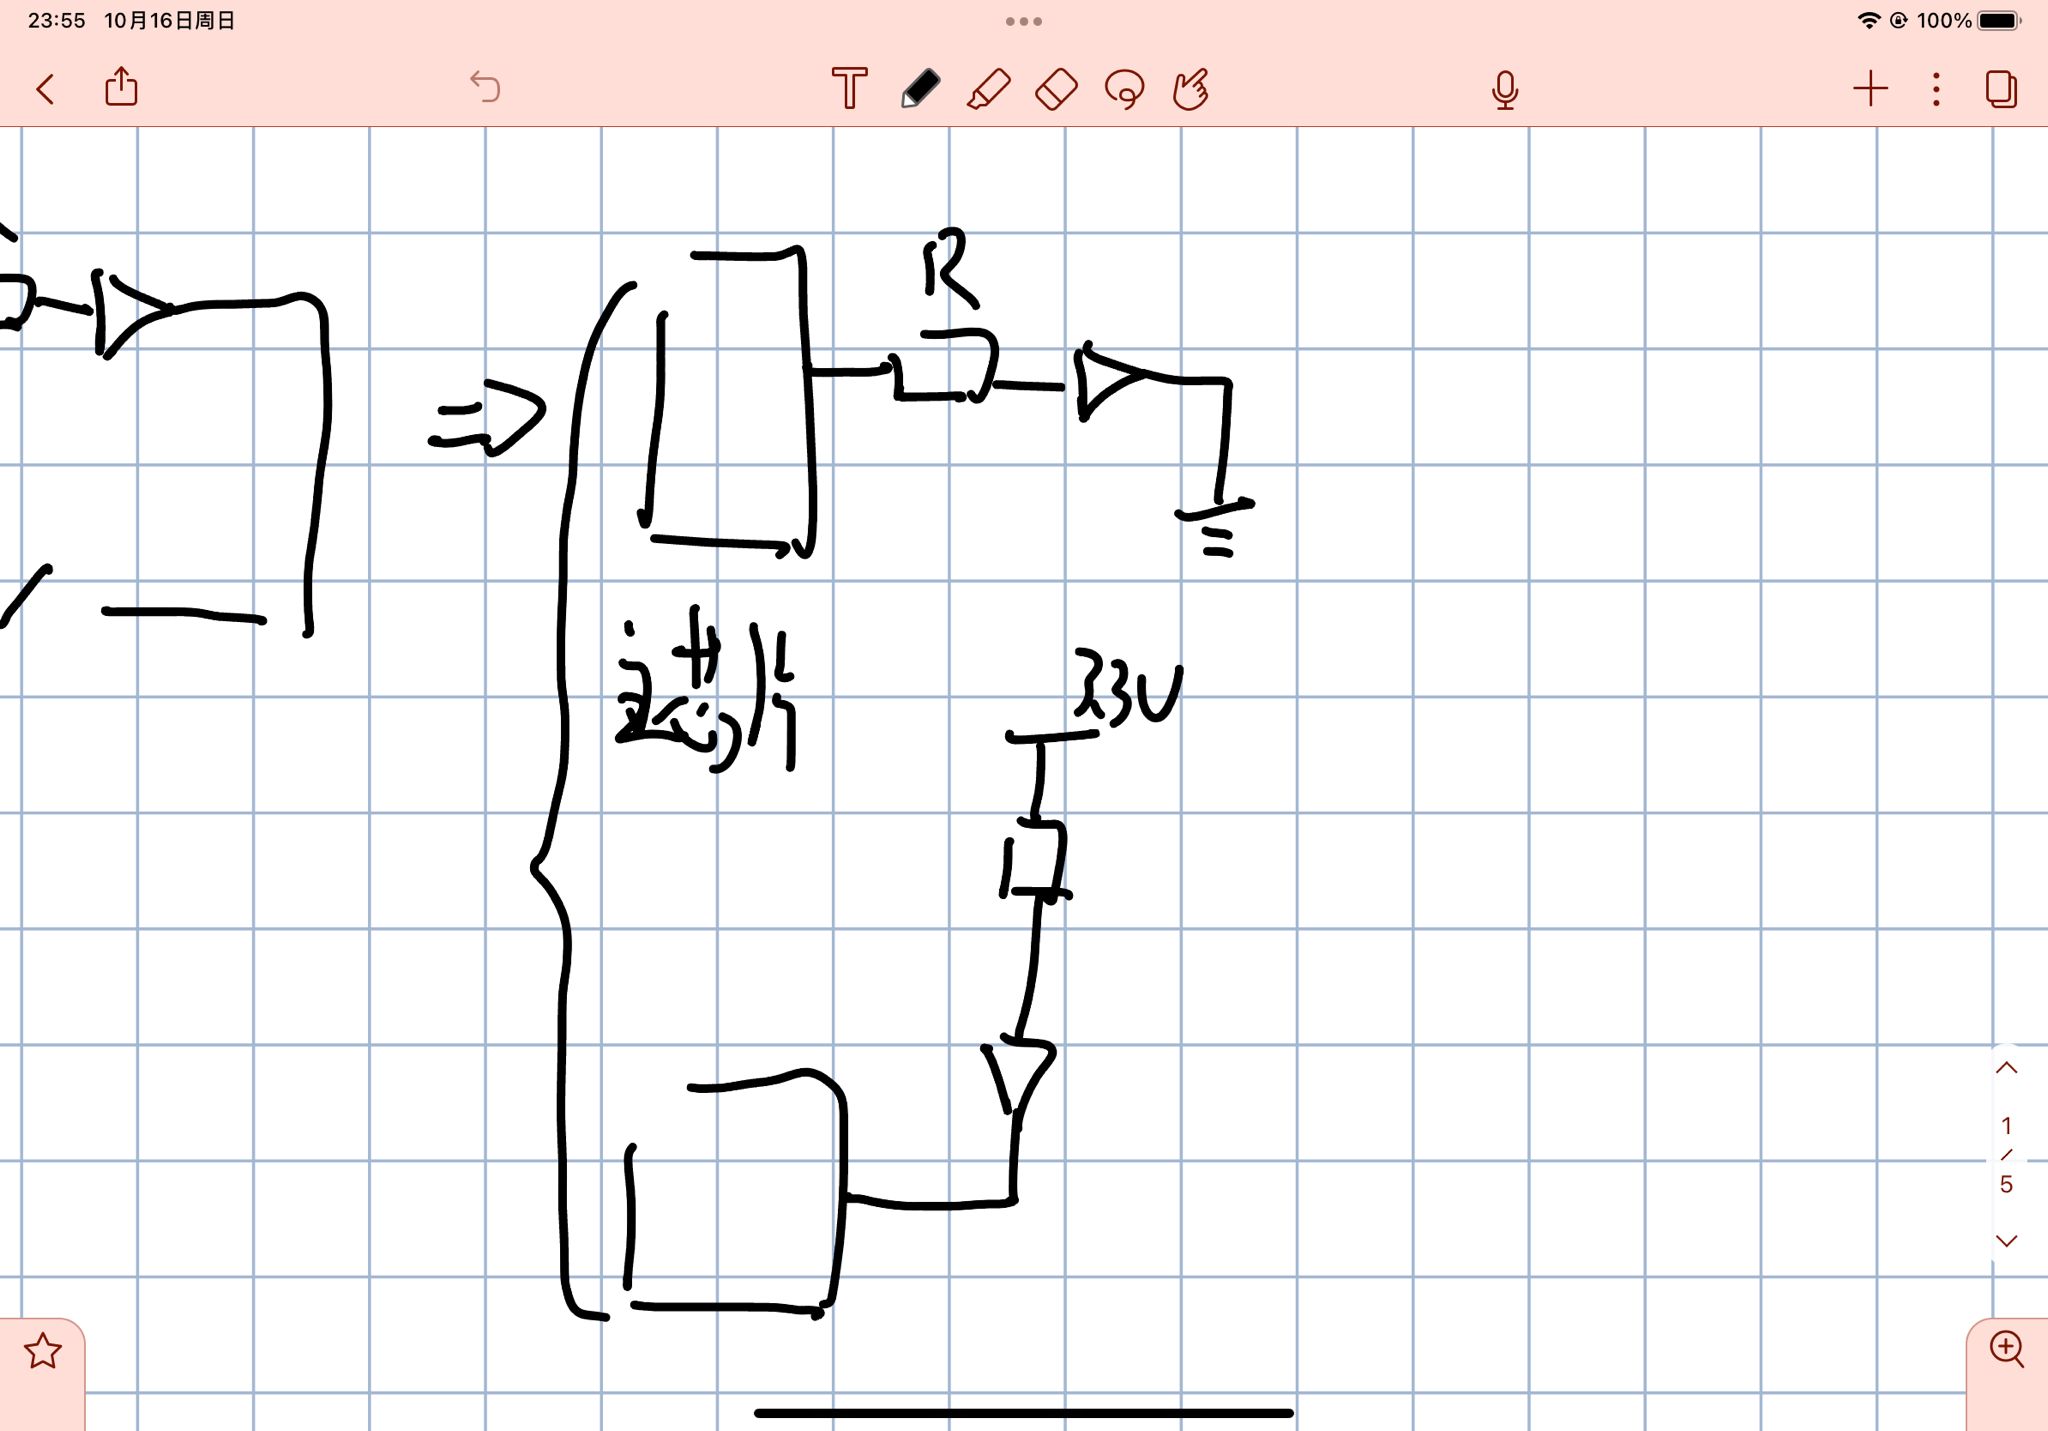 23:55 10月16日周日 100%
R
33V
1
/
5